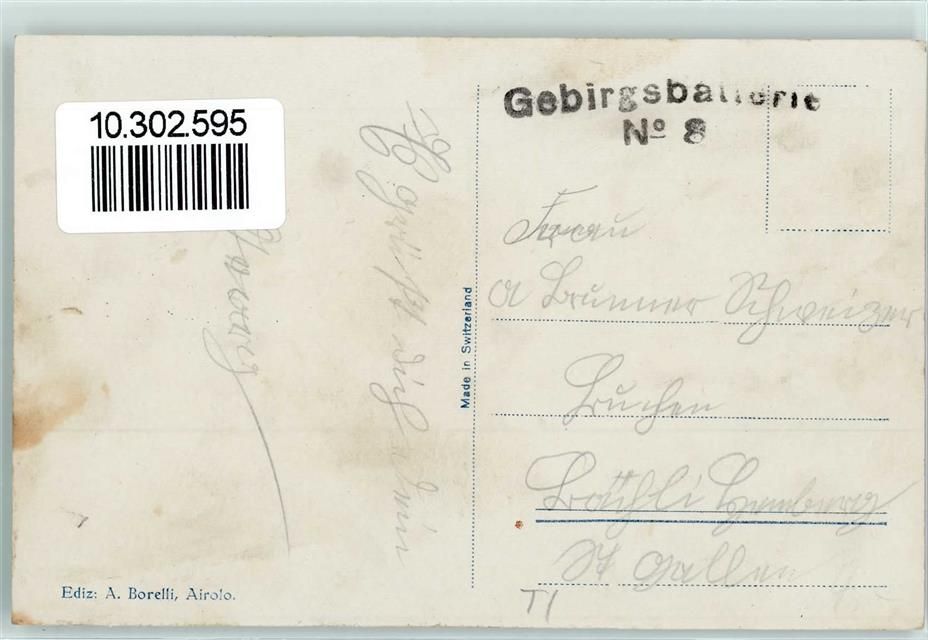 10.302.595
Gebirgsbatterie
Nº 8
grüßt dich
Frau
a Brunner Schweizer
Buchen
Bächli Hemberg
St Gallen
Made in Switzerland
Ediz: A. Borelli, Airolo.
TI